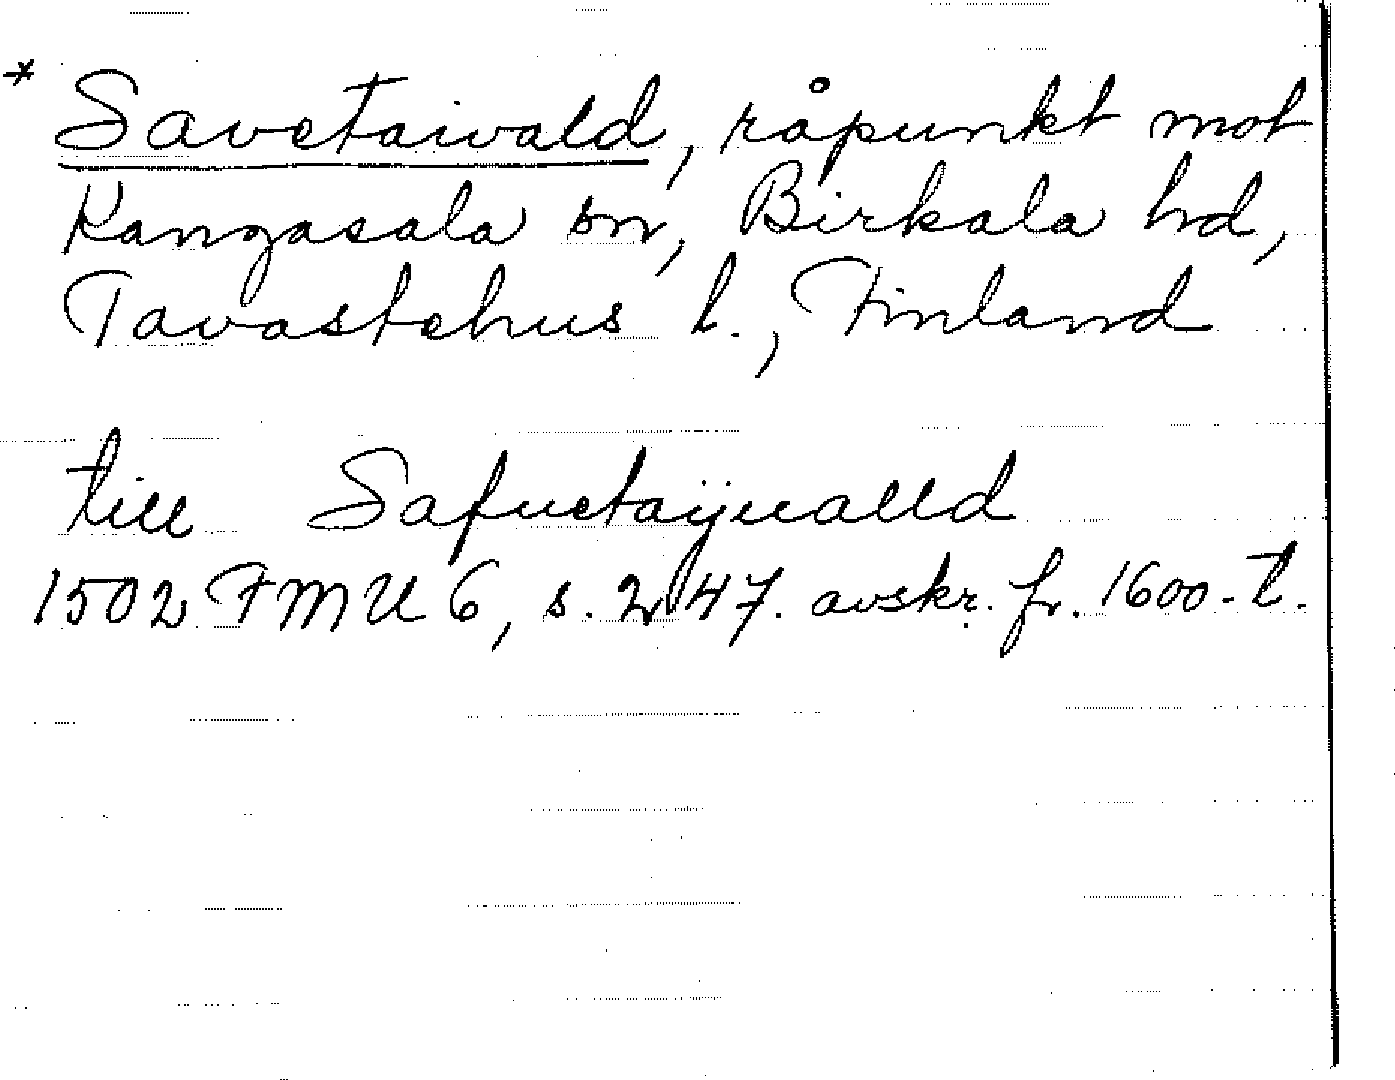 * Savetaivald, råpunkt mot
Kangasala sn, Birkala hd,
Tavastehus l., Finland
till Safuetaijualld
1502 FMU 6, s. 247. avskr. fr. 1600-t.